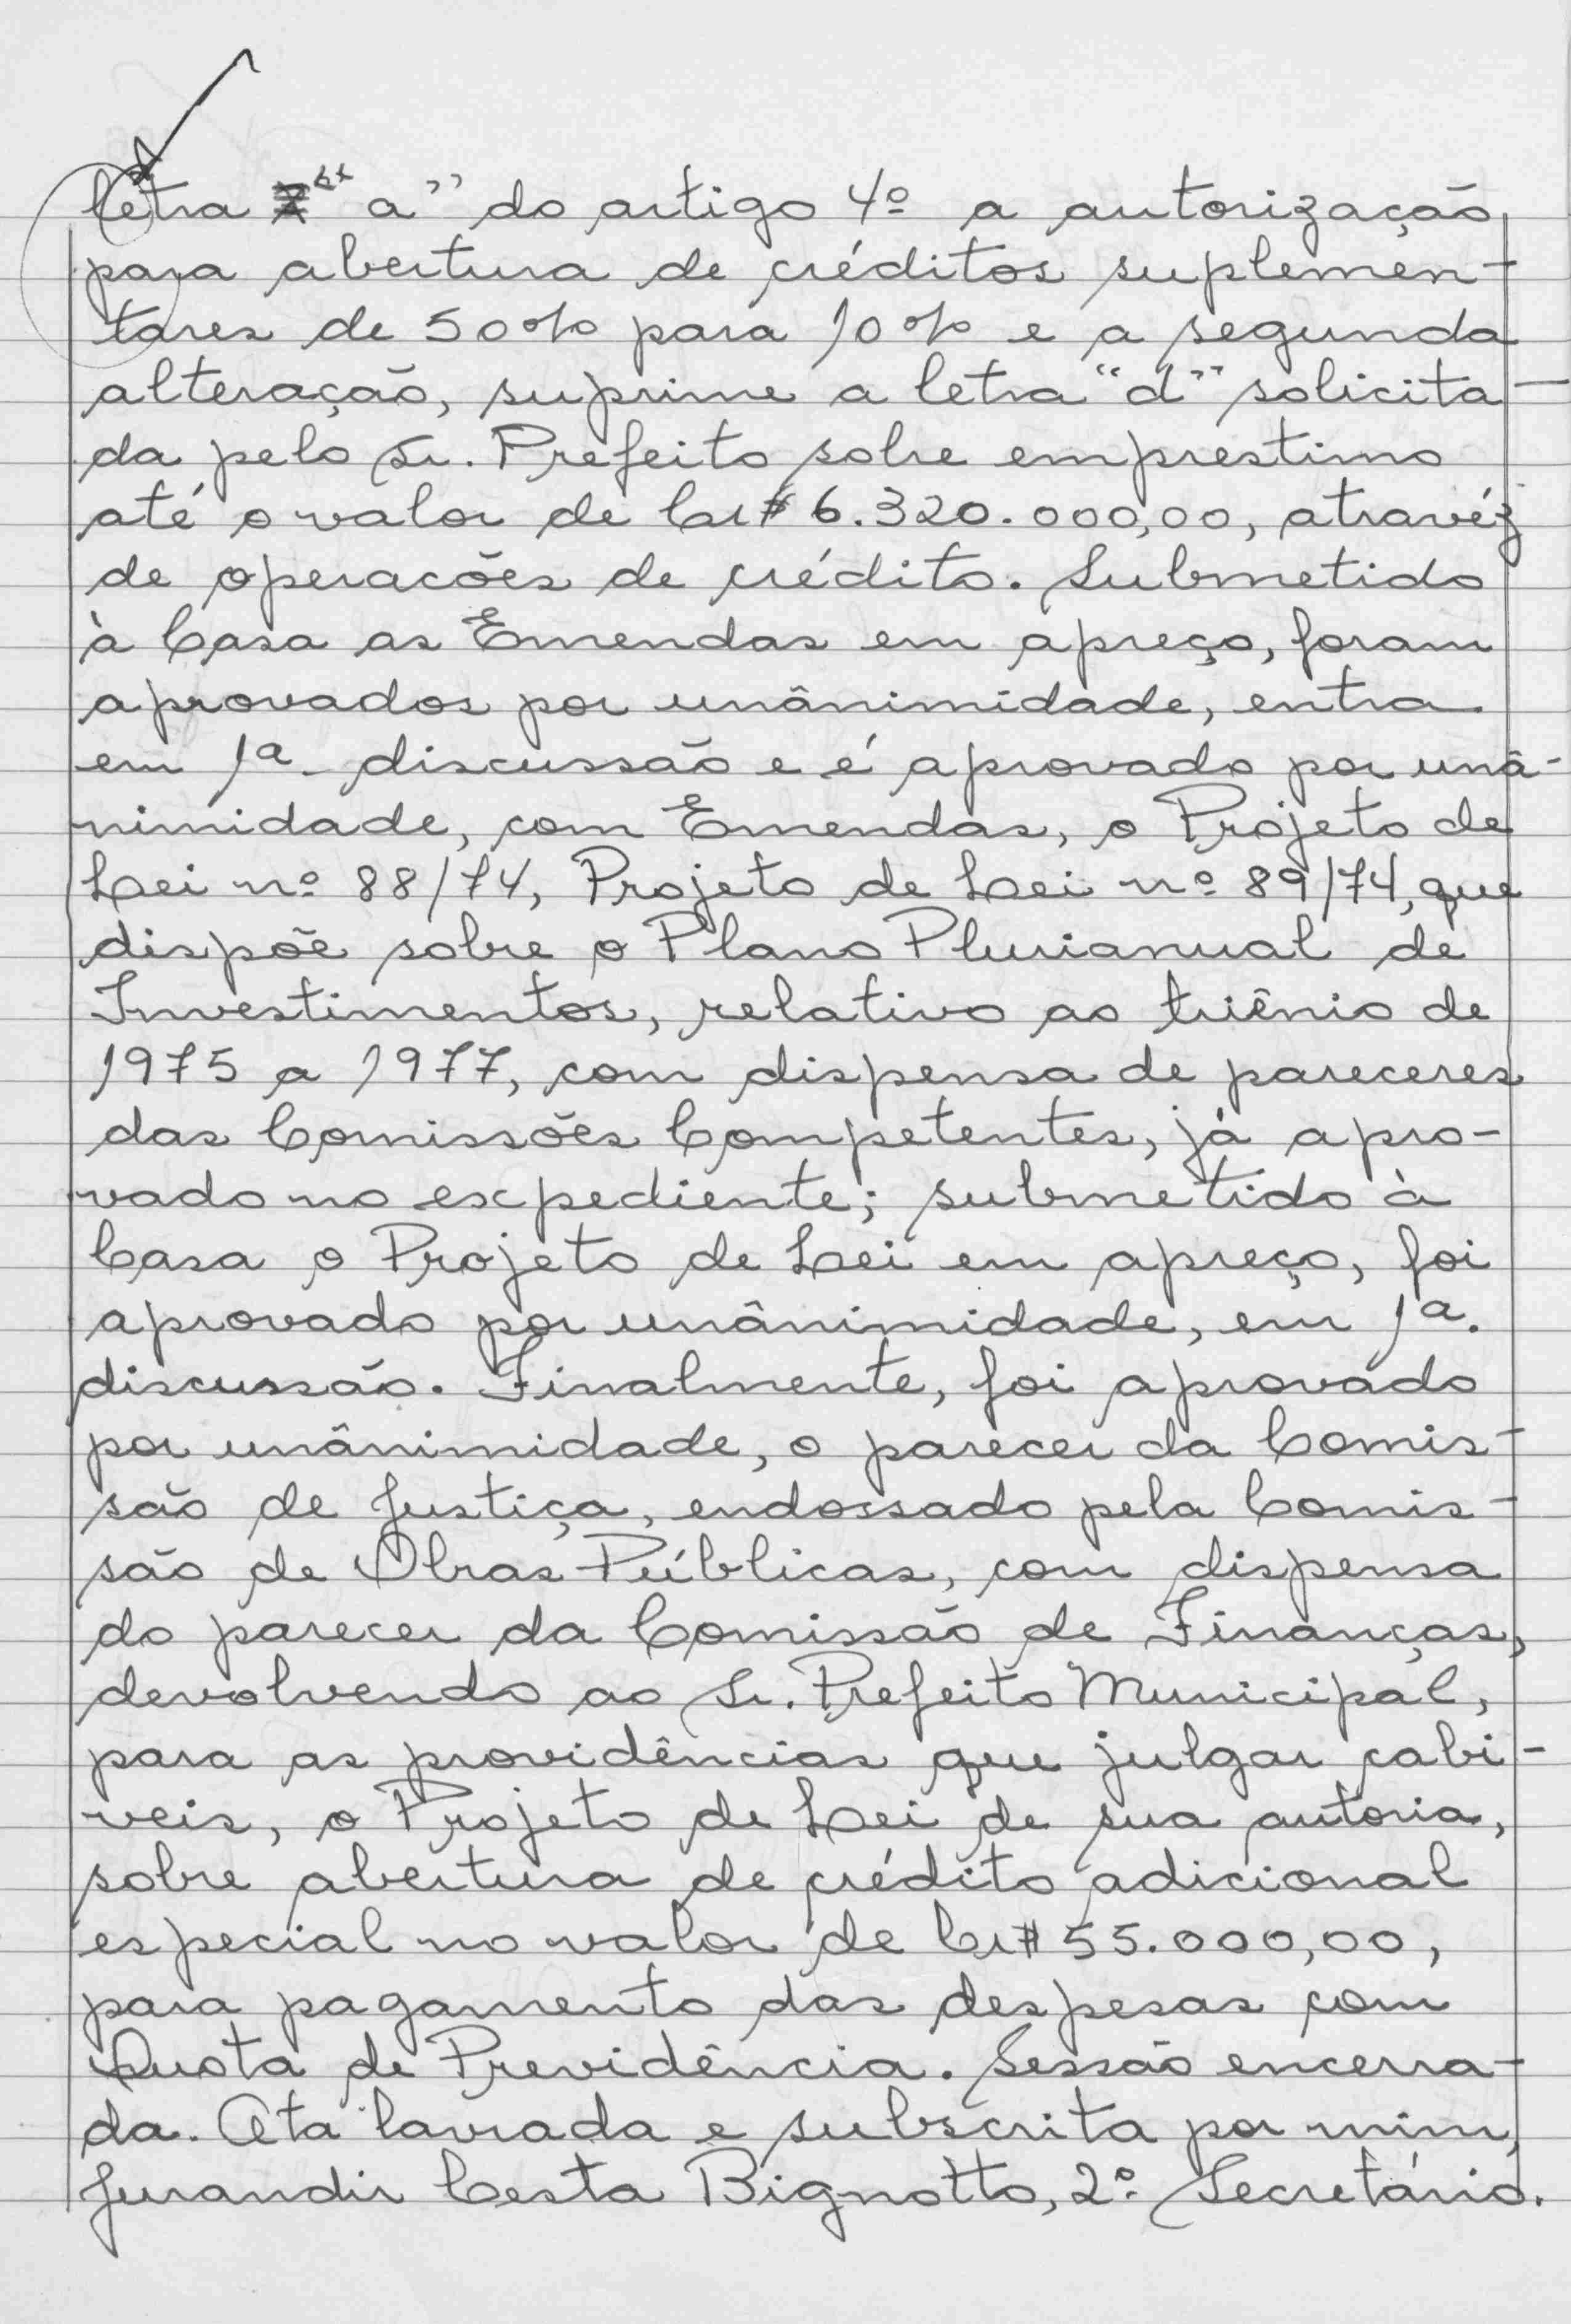 letra "a" do artigo 4º a autorização
para abertura de créditos suplemen-
tares de 50% para 10% e a segunda
alteração, suprime a letra "d" solicita-
da pelo Sr. Prefeito sobre emprestimo
até o valor de Cr$ 6.320.000,00, atravéz
de operacões de crédito. Submetido
à Casa as Emendas em apreço, foram
aprovados por unânimidade, entra
em 1ª discussão e é aprovado por unâ-
nimidade, com Emendas, o Projeto de
Lei nº 88/74, Projeto de Lei nº 89/74, que
dispõe sobre o Plano Plurianual de
Investimentos, relativo ao triênio de
1975 a 1977, com dispensa de pareceres
das Comissões Competentes, já apro-
vado no expediente; submetido à
Casa o Projeto de Lei em apreço, foi
aprovado por unânimidade, em 1ª.
discussão. Finalmente, foi aprovado
por unânimidade, o parecer da Comis-
são de Justiça, endossado pela Comis-
são de Obras Públicas, com dispensa
do parecer da Comissão de Finanças,
devolvendo ao Sr. Prefeito Municipal,
para as providências que julgar cabi-
veis, o Projeto de Lei de sua autoria,
sobre abertura de crédito adicional
especial no valor de Cr$ 55.000,00,
para pagamento das despesas com
Quota de Previdência. Sessão encerra-
da. Ata lavrada e subscrita por mim,
Jurandir Cesta Bignotto, 2º Secretário.